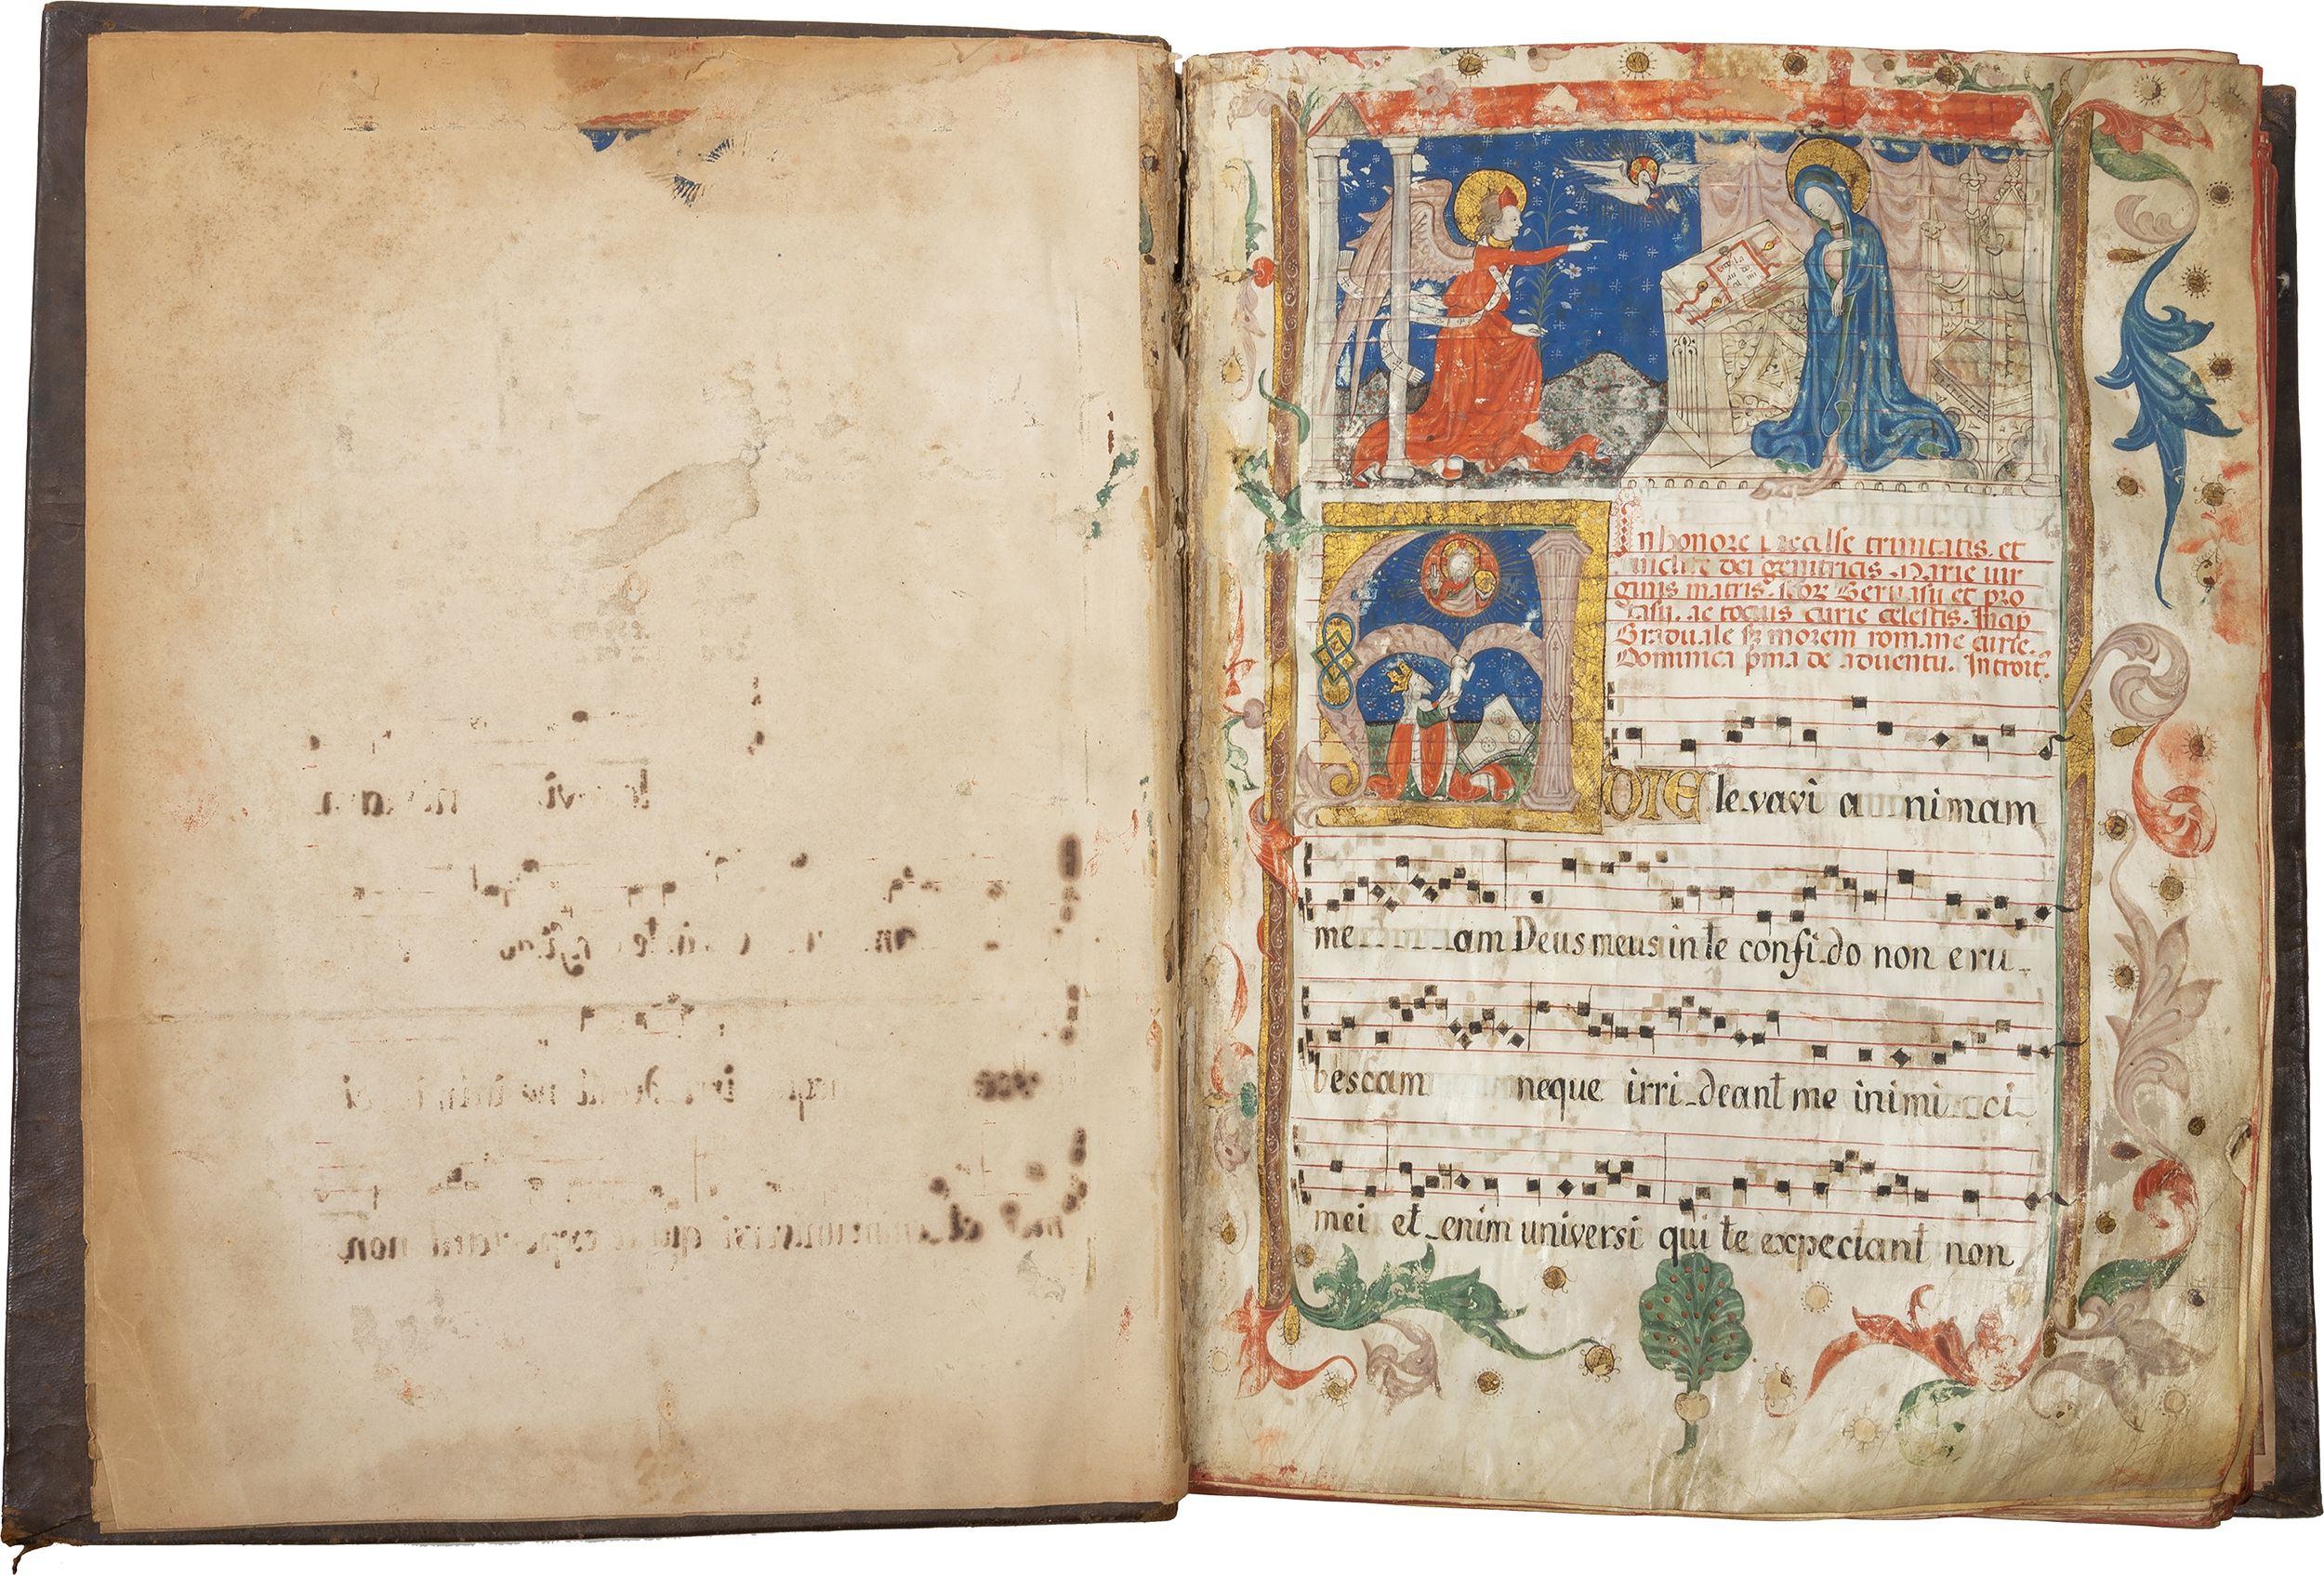 In honore trinitatis. et
inclite dei genitricis Marie vir
ginis matris. scor Gervasii et pro
tasii. ac totius curie celestis. Incip
Graduale sz morem romane curie.
Dominica pma de adventu. Introit.
A DTE le-vavi a nimam
me am Deus meus in te confi-do non eru-
bescam neque irri-deant me inimi ci
mei et-enim universi qui te expectant non